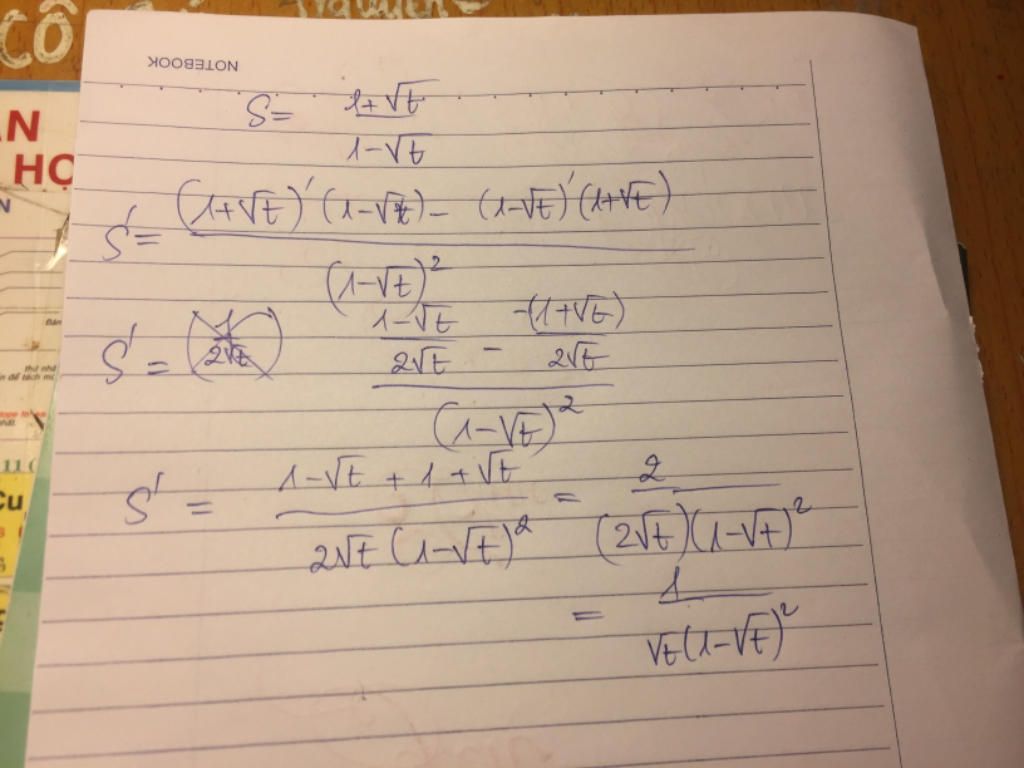 CÔ
NOTEBOOK
ÂN
HỌ
N
S = \frac{1+\sqrt{t}}{1-\sqrt{t}}
S' = \frac{(1+\sqrt{t})'(1-\sqrt{t}) - (1-\sqrt{t})'(1+\sqrt{t})}{(1-\sqrt{t})^2}
S' = \frac{\frac{1-\sqrt{t}}{2\sqrt{t}} - \frac{-(1+\sqrt{t})}{2\sqrt{t}}}{(1-\sqrt{t})^2}
S' = \frac{1-\sqrt{t}+1+\sqrt{t}}{2\sqrt{t}(1-\sqrt{t})^2} = \frac{2}{(2\sqrt{t})(1-\sqrt{t})^2}
= \frac{1}{\sqrt{t}(1-\sqrt{t})^2}
11
Cu